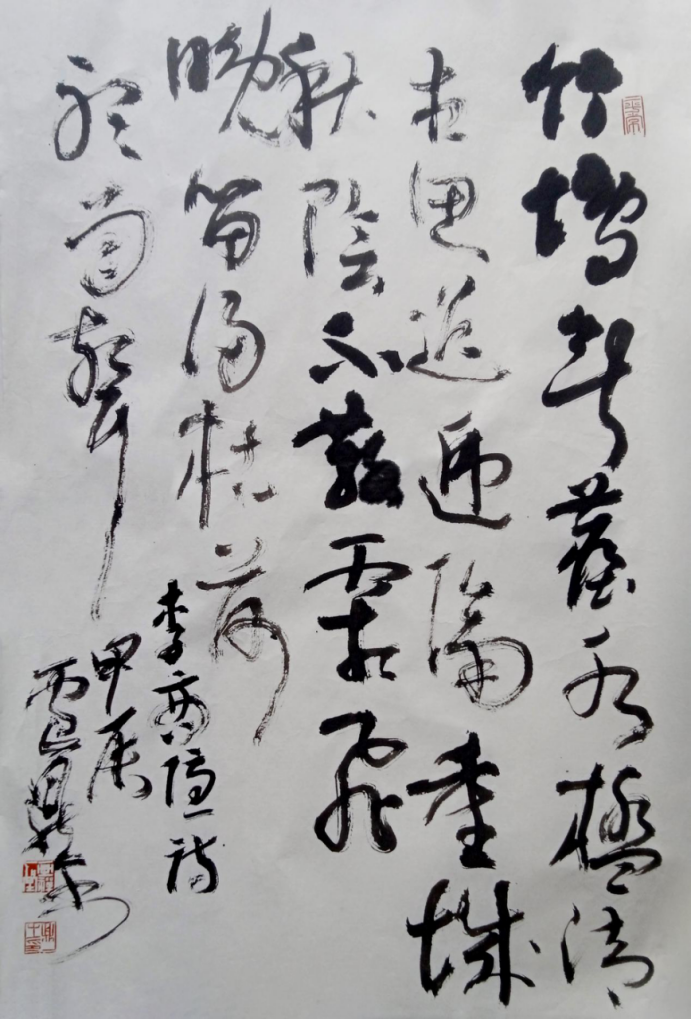 竹塢無塵水檻清
相思迢遞隔重城
秋陰不散霜飛
晚留得枯荷
聽雨聲
李商隱詩
甲辰